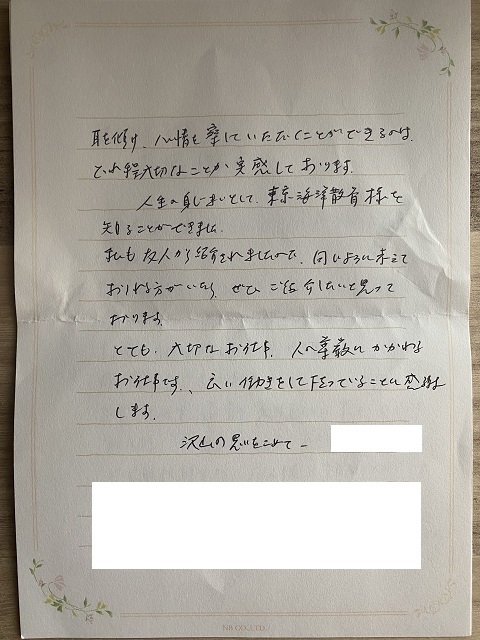 耳を傾け、心情を察していただくことができるのは、
どれ程大切なことか実感しております。
人生の身じまいとして、東京海洋散骨様を
知ることができました。
私も友人から紹介されましたので、同じように考えて
おられる方がいたら、ぜひご紹介したいと思って
おります。
とても、大切なお仕事、人の尊厳にかかわる
お仕事です。良い働きをして下さっていることに感謝
します。
沢山の思いをこめて―
NB CO.,LTD.